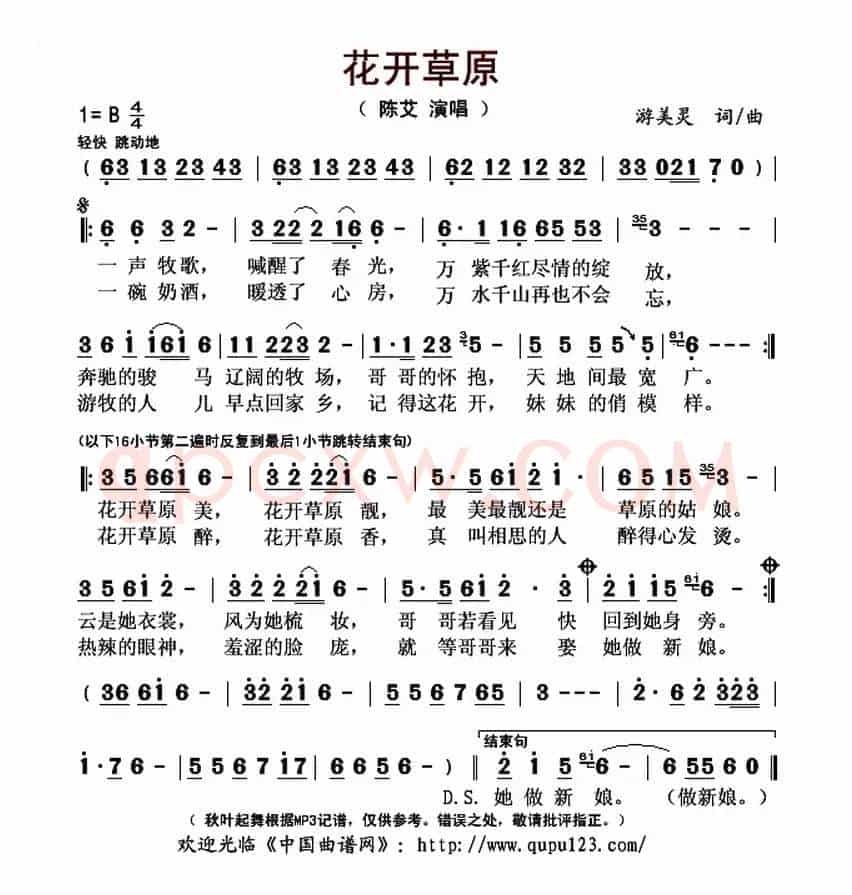 花开草原
（ 陈艾 演唱 ）
1= B 4/4
游美灵 词/曲
轻快 跳动地
( 63 13 23 43 | 63 13 23 43 | 62 12 12 32 | 33 021 7 0 ) |
|: 6 6 3 2 - | 3 22 2 16 6 - | 6· 1 16 65 53 | 35 3 - - - |
一 声 牧 歌， 喊醒了 春 光， 万 紫千红尽情的绽 放，
一 碗 奶 酒， 暖透了 心 房， 万 水千山再也不会 忘，
3 6 i i6i 6 | 11 223 2 - | 1·1 23 3 5 - | 5 5 5 5 5 | 61 6 - - :|
奔驰的骏 马 辽阔的牧 场， 哥 哥的怀 抱， 天 地 间最 宽 广。
游牧的人 儿 早点回家 乡， 记 得这花 开， 妹 妹的俏 模 样。
(以下16小节第二遍时反复到最后1小节跳转结束句)
|: 3 5 66i 6 - | 3 2 22i 6 - | 5· 5 61 2 2 | 65 15 35 3 - |
花开草原 美， 花开草原 靓， 最 美最靓还是 草原的姑 娘。
花开草原 醉， 花开草原 香， 真 叫相思的人 醉得心发 烫。
3 5 6i 2 - | 3 3 2 2i 6 - | 5· 5 61 2 · 3 | 2 i 15 6i 6 - :|
云是她衣裳， 风为她梳 妆， 哥 哥若看见 快 回到她身 旁。
热辣的眼神， 羞涩的脸 庞， 就 等哥哥来 娶 她做 新 娘。
( 36 6i 6 - | 32 2i 6 - | 5 5 6 7 65 | 3 - - - | 2· 6 2 323 |
i·7 6 - | 5 5 6 7 i7 | 6 6 5 6 - ) |
结束句
2 i 5 6i 6 - | 6 55 6 0 ||
D.S. 她 做 新 娘。 （做新娘。）
（ 秋叶起舞根据MP3记谱，仅供参考。错误之处，敬请批评指正。）
欢迎光临《中国曲谱网》：http://www.qupu123.com/
qpcxw.COM